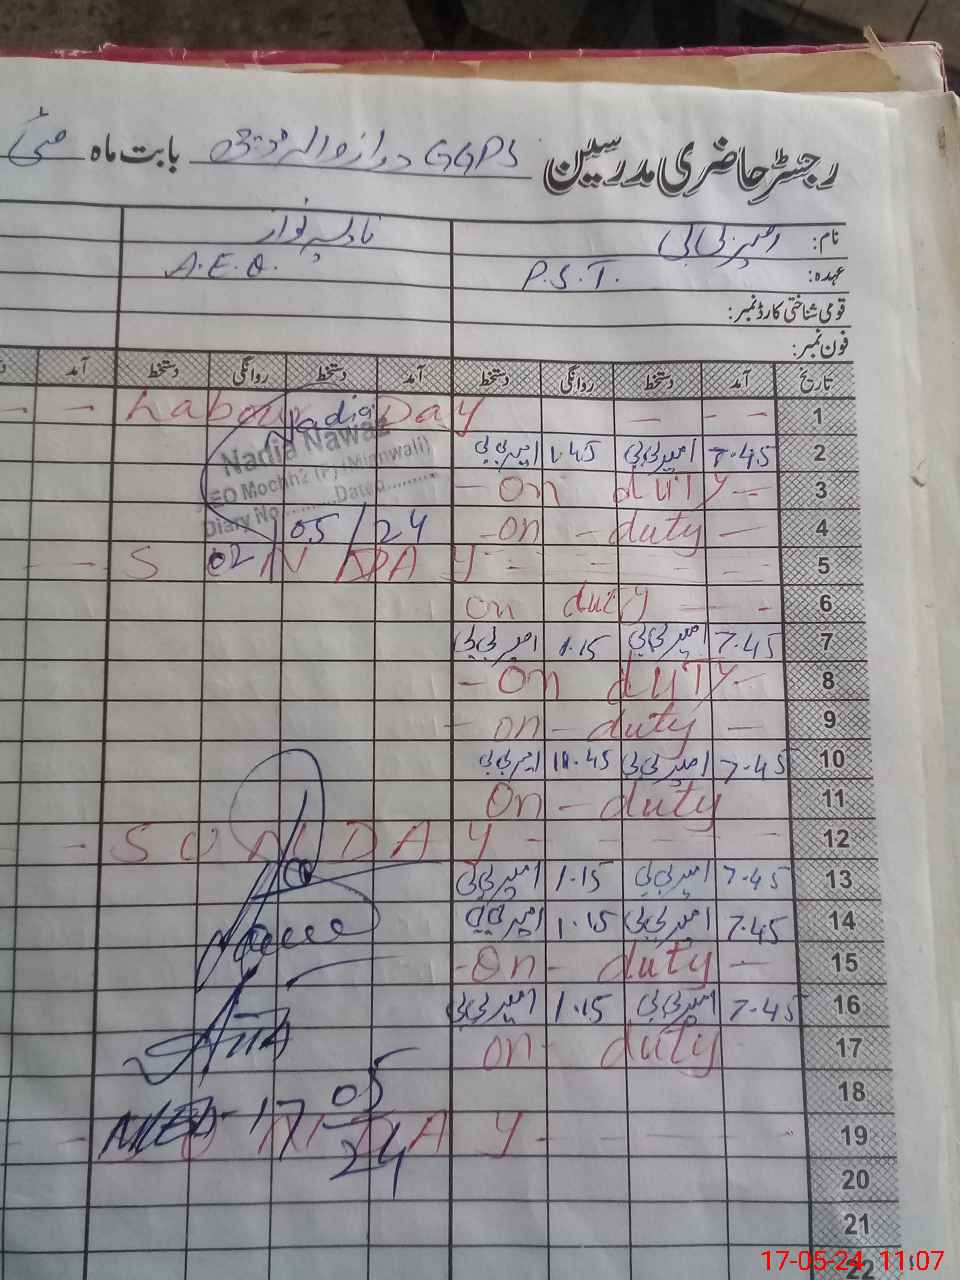 رجسٹر حاضری مدرسین GGPS بابت ماہ مئی
نام: بی بی نادیہ نواز
عہدہ: P.S.T. A.E.O.
قومی شناختی کارڈ نمبر:
فون نمبر:
تاریخ آمد دستخط روانگی دستخط آمد دستخط روانگی دستخط آمد
1 Labour Day
Nadia
Nadia Nawaz
2 7.45 امیر بی بی 1.45 امیر بی بی
(Mianwali)
3 On duty
Diary No..........Dated..........
4 on duty
02/05/24
5 SUNDAY
6 on duty
7 7.45 امیر بی بی 1.15 امیر بی بی
8 On duty
9 on duty
10 7.45 امیر بی بی امیر بی بی
11 On duty
12 SUNDAY
13 7.45 امیر بی بی 1.15 امیر بی بی
14 7.45 امیر بی بی 1.15 امیر بی بی
15 On duty
16 7.45 امیر بی بی 1.15 امیر بی بی
17 on duty
18
17 05 24
19 SUNDAY
20
21
22
17-05-24 11:07